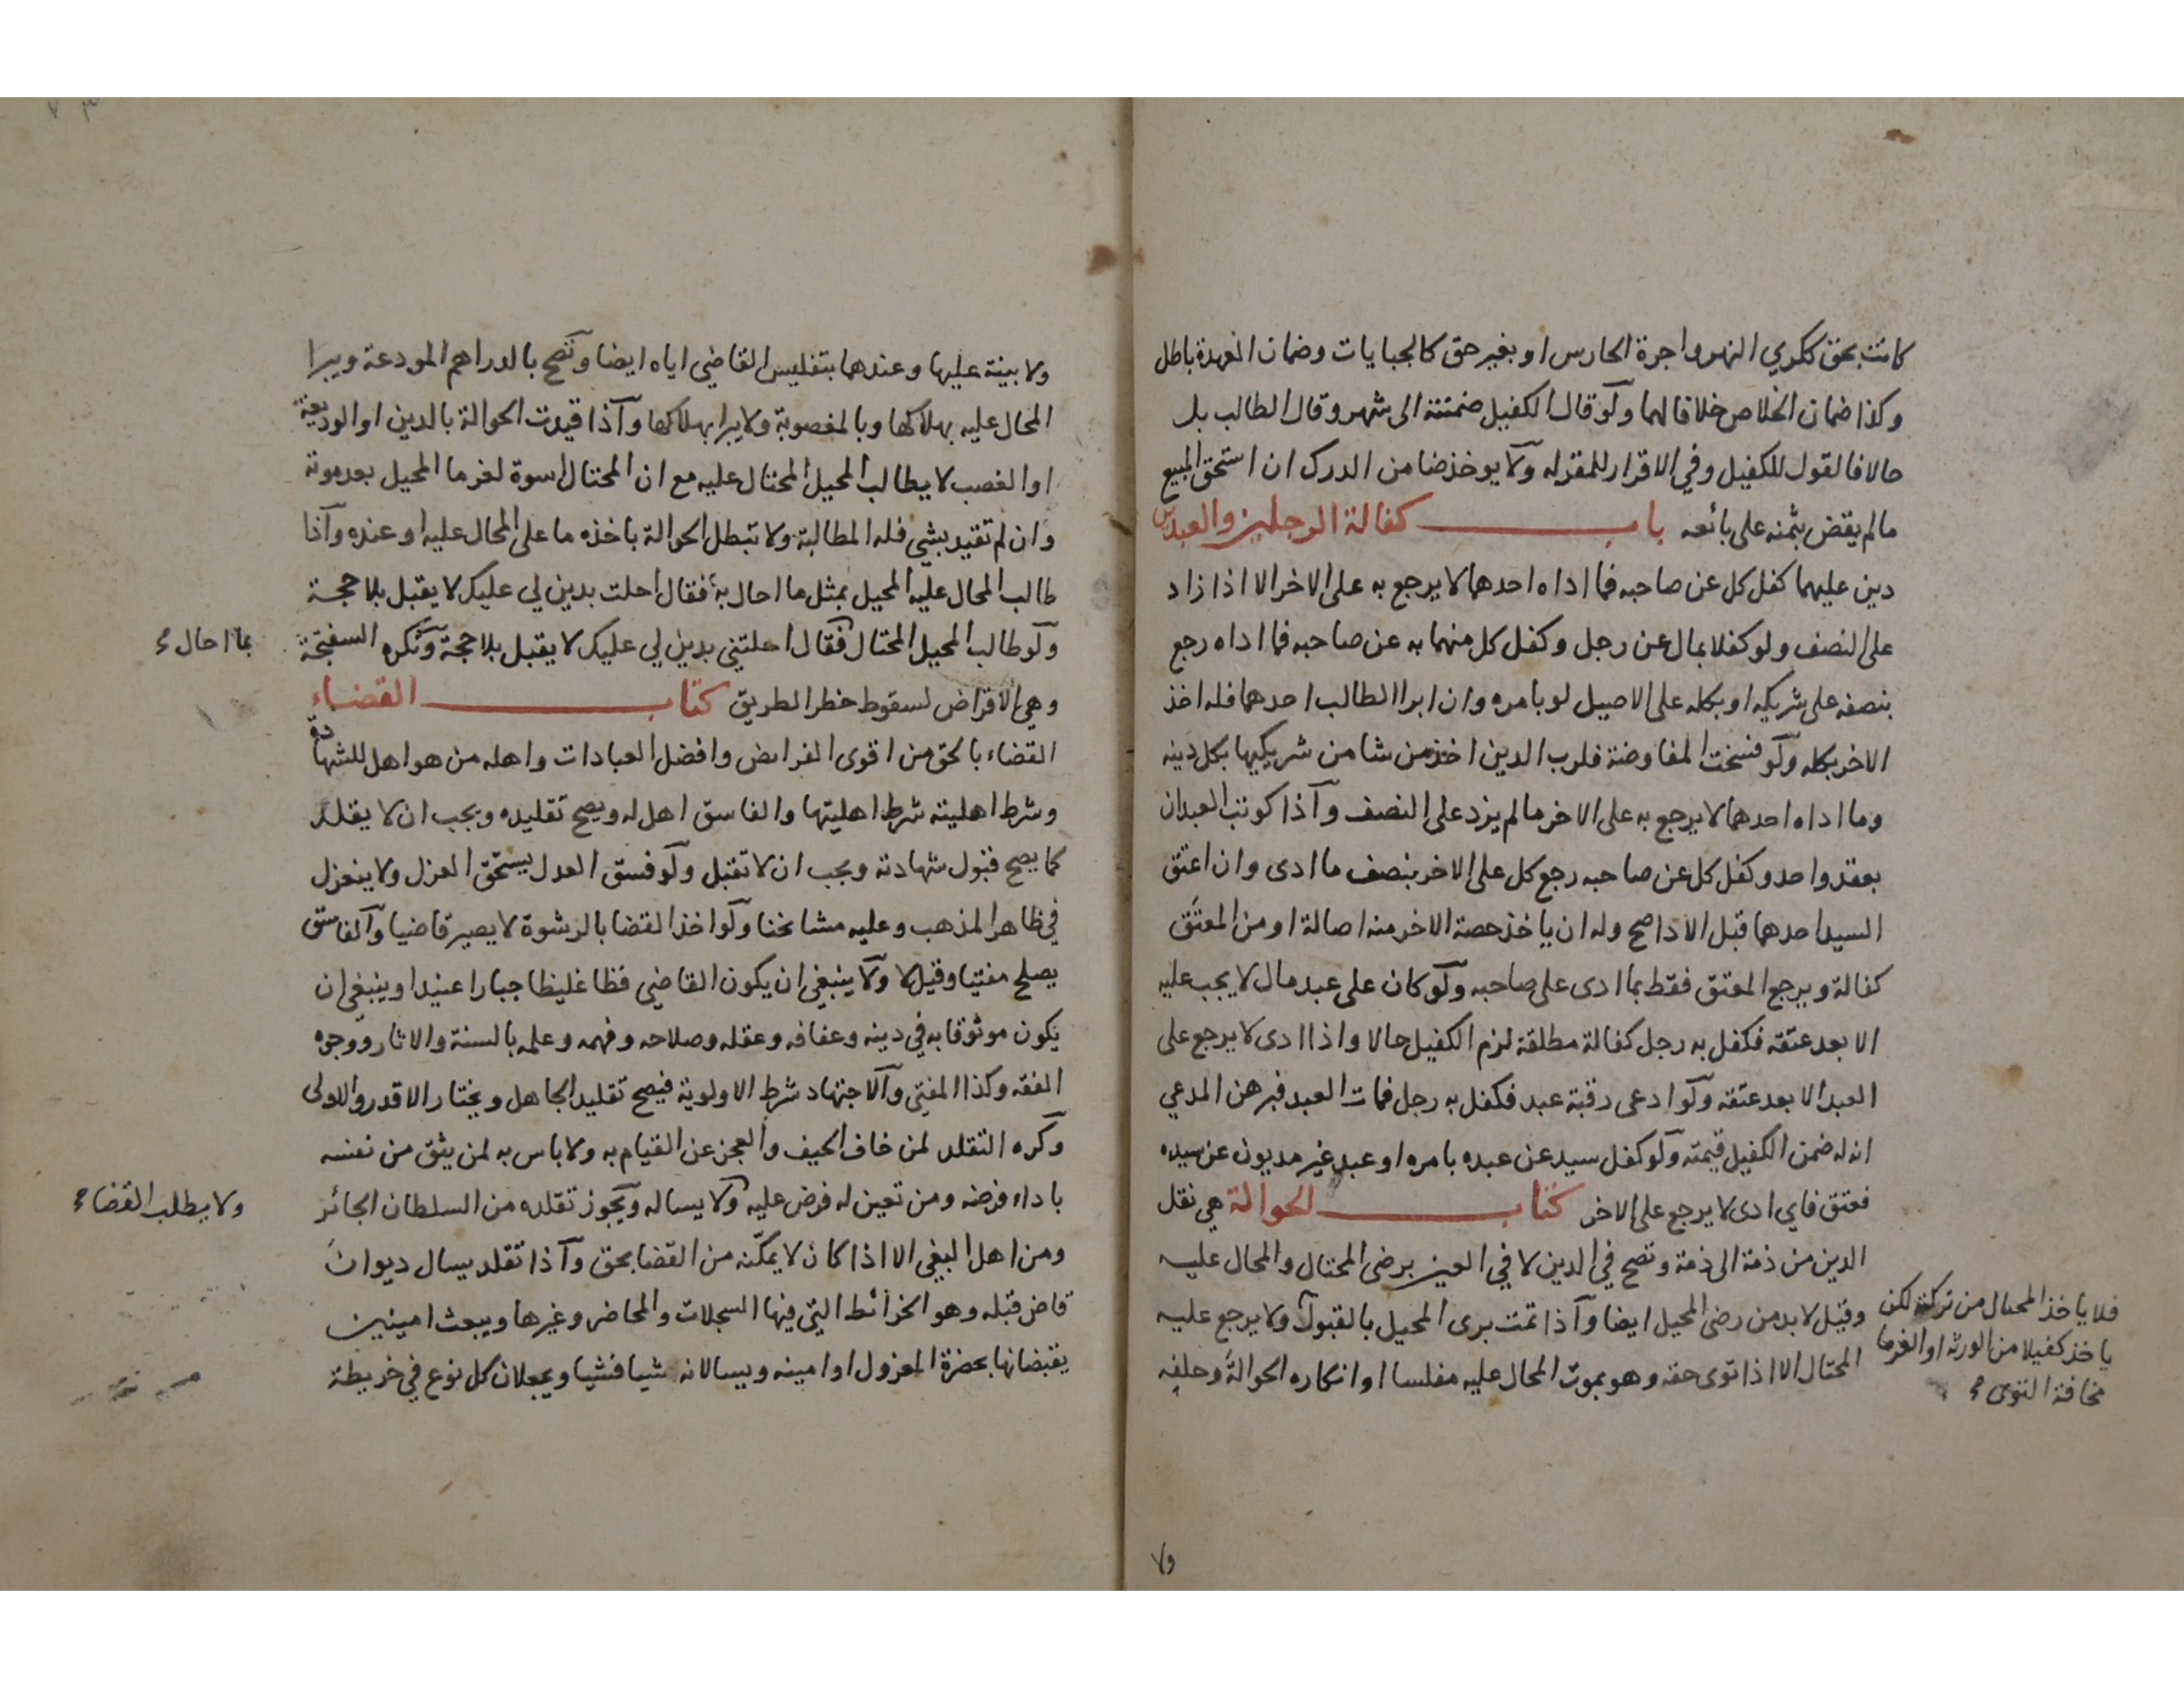 كانت بحق ككري النهر واجرة الحارس او بغير حق كالجبايات وضمان العهدة باطل
وكذا ضمان الخلاص خلافا لهما ولو قال الكفيل ضمنته الى شهر وقال الطالب بل
حالا فالقول للكفيل وفي الاقرار للمقر له ولا يوخذ ضامن الدرك ان استحق المبيع
ما لم يقض بثمنه على بائعه باب كفالة الرجلين والعبدين
دين عليهما كفل كل عن صاحبه فما اداه احدهما لا يرجع به على الاخر الا اذا زاد
على النصف ولو كفلا بمال عن رجل وكفل كل منهما به عن صاحبه فما اداه رجع
بنصفه على شريكه او بكله على الاصيل لو بامره وان ابرا الطالب احدهما فله اخذ
الاخر بكله ولو فسخت المفاوضة فلرب الدين اخذ من شا من شريكيها بكل دينه
وما اداه احدهما لا يرجع به على الاخر ما لم يزد على النصف واذا كوتب العبدان
بعقد واحد وكفل كل عن صاحبه رجع كل على الاخر بنصف ما ادى وان اعتق
السيد احدهما قبل الادا صح وله ان ياخذ حصة الاخر منه اصالة او من المعتق
كفالة ويرجع المعتق فقط بما ادى على صاحبه ولو كان على عبد مال لا يجب عليه
الا بعد عتقه فكفل به رجل كفالة مطلقة لزم الكفيل حالا واذا ادى لا يرجع على
العبد الا بعد عتقه ولو ادعى رقبة عبد فكفل به رجل فمات العبد فبرهن المدعي
انه له ضمن الكفيل قيمته ولو كفل سيد عن عبده بامره او عبد غير مديون عن سيده
فعتق فاي ادى لا يرجع على الاخر كتاب الحوالة هي نقل
الدين من ذمة الى ذمة وتصح في الدين لا في العين برضى المحتال والمحال عليه
وقيل لا بد من رضى المحيل ايضا واذا تمت برى المحيل بالقبول ولا يرجع عليه
المحتال الا اذا توى حقه وهو بموت المحال عليه مفلسا او انكاره الحوالة وحلفه
فلا ياخذ المحتال من تركته لكن
ياخذ كفيلا من الورثه او الغرما
مخافة التوى
ولا
ولا بينة عليها وعندهما بتفليس القاضي اياه ايضا وتصح بالدراهم المودعة ويبرا
المحال عليه بهلاكها وبالمغصوبة ولا يبرا بهلاكها واذا قيدت الحوالة بالدين او الوديعة
او الغصب لا يطالب المحيل المحتال عليه مع ان المحتال اسوة لغرما المحيل بعد موته
وان لم تقيد بشي فله المطالبة ولا تبطل الحوالة باخذه ما على المحال عليه او عنده واذا
طالب المحال عليه المحيل بمثل ما احال به فقال احلت بدين لي عليك لا يقبل بلا حجة
ولو طالب المحيل المحتال فقال احلتني بدين لي عليك لا يقبل بلا حجة وتكره السفتجة
بما احال
وهي الاقراض لسقوط خطر الطريق كتاب القضاء
القضاء بالحق من اقوى الفرايض وافضل العبادات واهله من هو اهل للشهادة
وشرط اهليته شرط اهليتها والفاسق اهل له ويصح تقليده ويجب ان لا يقلد
كما يصح قبول شهادته ويجب ان لا تقبل ولو فسق العدل يستحق العزل ولا ينعزل
في ظاهر المذهب وعليه مشائخنا ولو اخذ القضا بالرشوة لا يصير قاضيا والفاسق
يصلح مفتيا وقيل لا ولا ينبغي ان يكون القاضي فظا غليظا جبارا عنيدا وينبغي ان
يكون موثوقا به في دينه وعفافه وعقله وصلاحه وفهمه وعلمه بالسنة والاثار ووجوه
الفقه وكذا المفتي والاجتهاد شرط الاولوية فيصح تقليد الجاهل ويختار الاقدر والاولى
وكره التقلد لمن خاف الحيف والعجز عن القيام به ولا باس به لمن يثق من نفسه
باداء فرضه ومن تعين له فرض عليه ولا يساله ويجوز تقلده من السلطان الجائر
ولا يطلب القضاء
ومن اهل البغي الا اذا كان لا يمكنه من القضا بحق واذا تقلد يسال ديوان
قاض قبله وهو الخرائط التي فيها السجلات والمحاضر وغيرها ويبعث امينين
يقبضانها بحضرة المعزول او امينه ويسالانه شيا فشيا ويجعلان كل نوع في خريطة